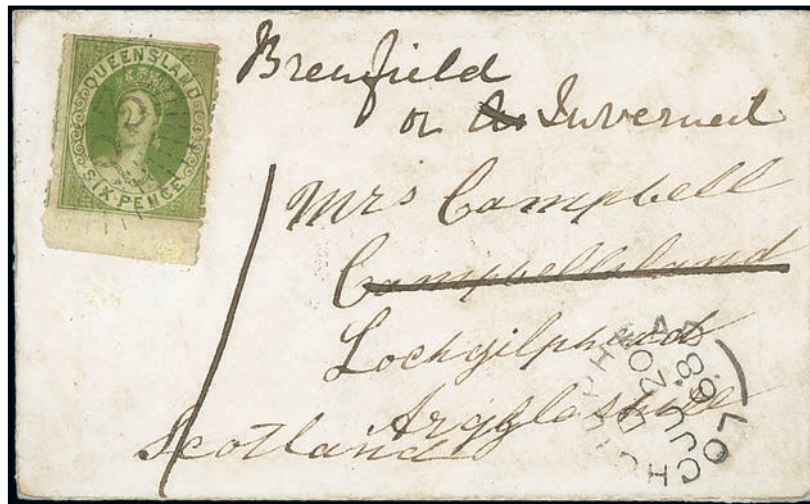 QUEENSLAND
SIX PENCE
Brenfield
or Inverneil
Mrs Campbell
Lochgilphead
Argyleshire
Scotland